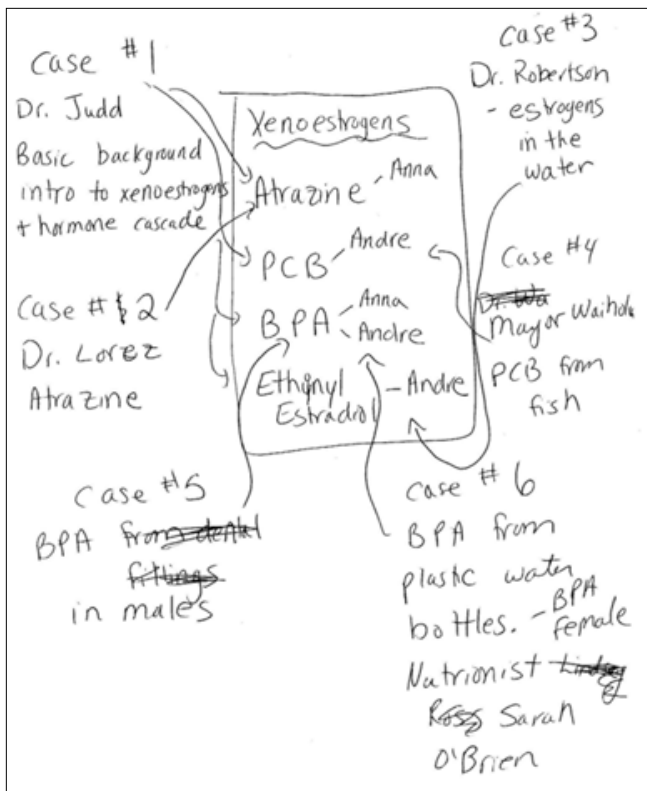 Case #1
Dr. Judd
Basic background
intro to xenoestrogens
+ hormone cascade
Case # 2
Dr. Lorez
Atrazine
Xenoestrogens
Atrazine - Anna
PCB - Andre
BPA - Anna
- Andre
Ethinyl
Estradiol - Andre
Case #3
Dr. Robertson
- estrogens
in the
water
Case #4
Mayor
PCB from
fish
Case #5
BPA from dental
fittings
in males
Case # 6
BPA from
plastic water
bottles. - BPA
female
Nutrionist
Sarah
O'Brien